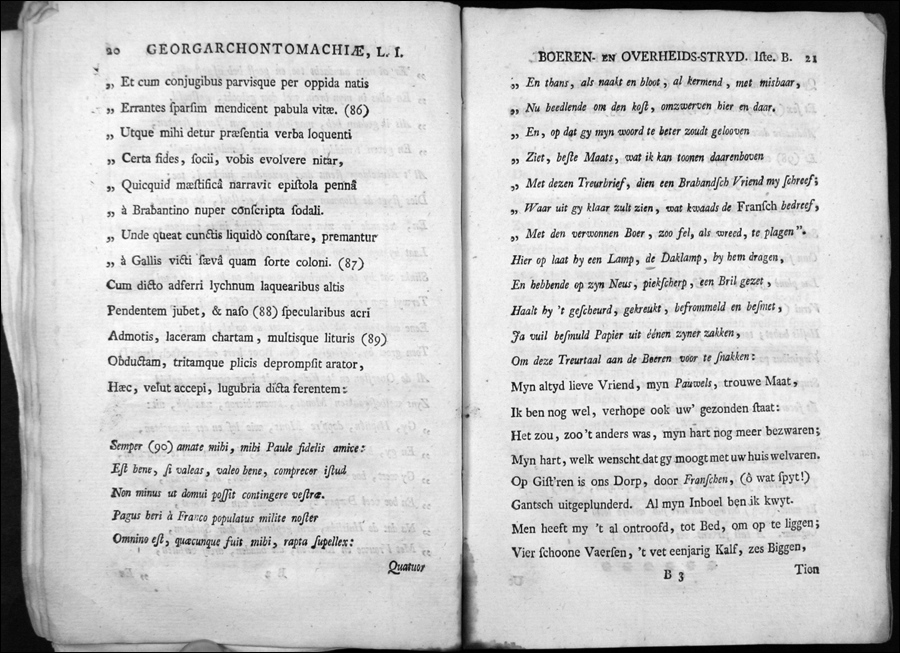 20 GEORGARCHONTOMACHIÆ, L. I.
„ Et cum conjugibus parvisque per oppida natis
„ Errantes ſparſim mendicent pabula vitæ. (86)
„ Utque mihi detur præſentia verba loquenti
„ Certa fides, ſocii, vobis evolvere nitar,
„ Quicquid mæſtificâ narravit epiſtola pennâ
„ à Brabantino nuper conſcripta ſodali.
„ Unde queat cunctis liquidò conſtare, premantur
„ à Gallis victi ſævâ quam ſorte coloni. (87)
Cum dicto adferri lychnum laquearibus altis
Pendentem jubet, & naſo (88) ſpecularibus acri
Admotis, laceram chartam, multisque lituris (89)
Obductam, tritamque plicis deprompſit arator,
Hæc, velut accepi, lugubria dicta ferentem:
Semper (90) amate mihi, mihi Paule fidelis amice:
Eſt bene, ſi valeas, valeo bene, comprecor iſtud
Non minus ut domui poſſit contingere veſtræ.
Pagus heri à Franco populatus milite noſter
Omnino eſt, quæcunque fuit mihi, rapta ſupellex:
Quatuor
BOEREN- EN OVERHEIDS-STRYD. Iſte. B. 21
„ En thans, als naakt en bloot, al kermend, met misbaar,
„ Nu beedlende om den koſt, omzwerven hier en daar.
„ En, op dat gy myn woord te beter zoudt gelooven
„ Ziet, beſte Maats, wat ik kan toonen daarenboven
„ Met dezen Treurbrief, dien een Brabandſch Vriend my ſchreef;
„ Waar uit gy klaar zult zien, wat kwaads de Franſch bedreef,
„ Met den verwonnen Boer, zoo fel, als wreed, te plagen”.
Hier op laat hy een Lamp, de Daklamp, by hem dragen,
En hebbende op zyn Neus, piekſcherp, een Bril gezet,
Haalt hy 't geſcheurd, gekreukt, befrommeld en beſmet,
Ja vuil beſmuld Papier uit éénen zyner zakken,
Om deze Treurtaal aan de Boeren voor te ſnakken:
Myn altyd lieve Vriend, myn Pauwels, trouwe Maat,
Ik ben nog wel, verhope ook uw' gezonden ſtaat:
Het zou, zoo 't anders was, myn hart nog meer bezwaren;
Myn hart, welk wenscht dat gy moogt met uw huis welvaren.
Op Giſt'ren is ons Dorp, door Franſchen, (ô wat ſpyt!)
Gantsch uitgeplunderd. Al myn Inboel ben ik kwyt.
Men heeft my 't al ontroofd, tot Bed, om op te liggen;
Vier ſchoone Vaerſen, 't vet eenjarig Kalf, zes Biggen,
B 3 Tion